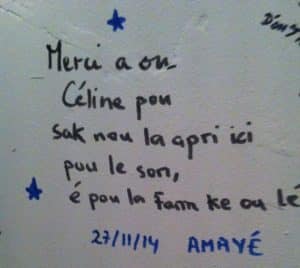 Merci a ou
Céline pou
sak nou la apri ici
pou le son,
é pou la famm ke ou lé
27/11/14 AMAYÉ